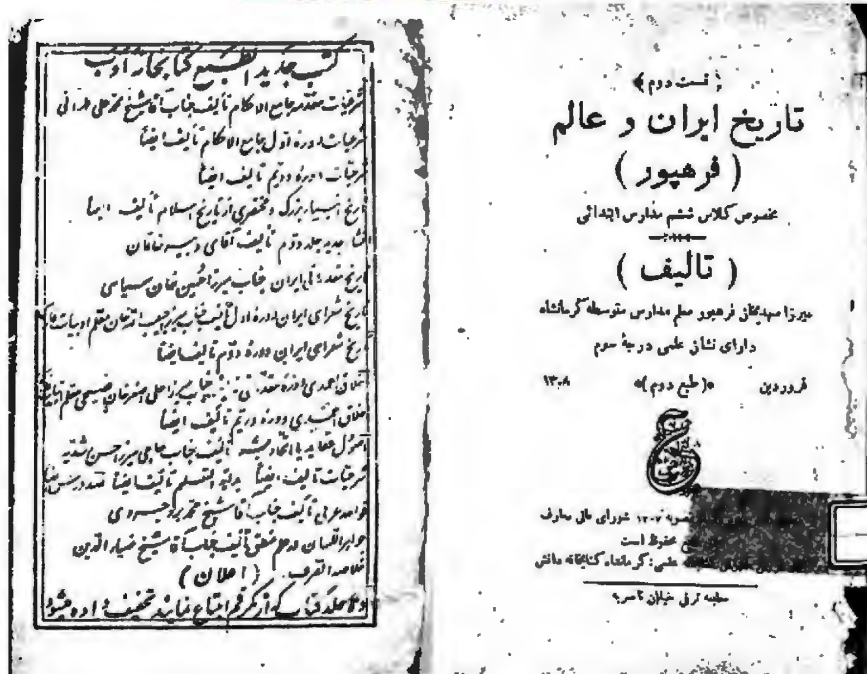 (قسمت دوم)
تاریخ ایران و عالم
( فرهپور )
مخصوص کلاس ششم مدارس ابتدائی
( تالیف )
میرزا مهدیخان فرهپور معلم مدارس متوسطه کرمانشاه
دارای نشان علمی درجهٔ سوم
فروردین «(طبع دوم)» ۱۳۰۸
۱۳۰۷ شورای عالی معارف
محفوظ است
علمی: کرمانشاه کتابخانه دانش
مطبعه ترقی خیابان ناصریه
کتب جدید الطبع کتابخانه ادب
شرعیات مقدمه جامع الاحکام تألیف جناب آقا شیخ محمد علی طهرانی
شرعیات دوره اول جامع الاحکام تألیف ایضاً
شرعیات دوره دویم تألیف ایضاً
تاریخ انبیاء بزرگ و مختصری از تاریخ اسلام تألیف ایضا
انشاء جدید جلد دوم تألیف آقای
تاریخ مقدماتی ایران جناب میرزا حسین خان سپاسی
تاریخ شعرای ایران دوره اول تألیف جناب میرزا معلم ادبیات
تاریخ شعرای ایران دوره دوم تألیف ایضاً
اخلاق احمدی دوره مقدماتی تألیف جناب میرزا علی اصغر خان معلم
اخلاق احمدی دوره دویم تألیف ایضاً
اصول عقاید تألیف جناب حاجی میرزا حسن
شرعیات تألیف ایضاً بدایة التعلیم تألیف ایضاً
قواعد عربی تألیف جناب آقا شیخ محمد بروجردی
جواهر اللسان در علم منطق تألیف جناب آقا شیخ ضیاء الدین
خلاصه الصرف ( اعلان )
جلد کتاب که از یکرقم ابتیاع نمایند تخفیف داده میشود